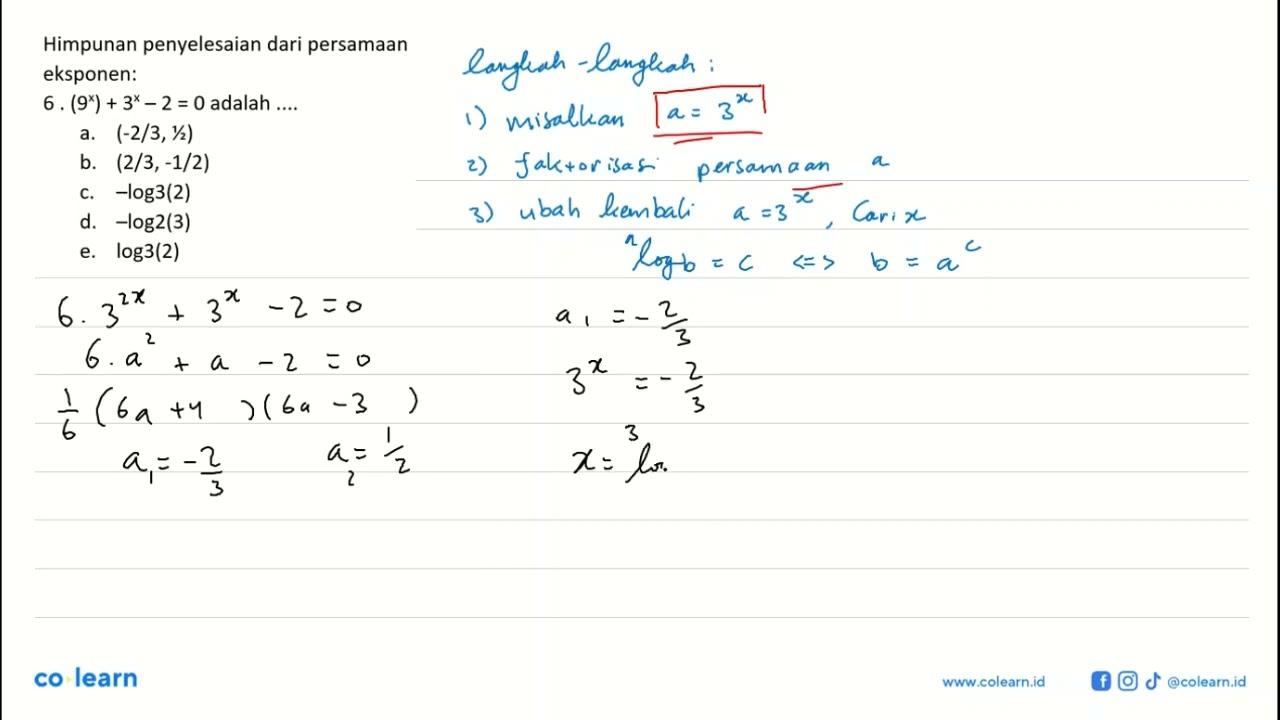 Himpunan penyelesaian dari persamaan
eksponen:
6 . (9ˣ) + 3ˣ – 2 = 0 adalah ....
a. (-2/3, ½)
b. (2/3, -1/2)
c. –log3(2)
d. –log2(3)
e. log3(2)
langkah - langkah :
1) misalkan a = 3ˣ
2) faktorisasi persamaan a
3) ubah kembali a = 3ˣ, cari x
ᵃlog b = c <=> b = aᶜ
6 . 3²ˣ + 3ˣ - 2 = 0
6 . a² + a - 2 = 0
1/6 (6a + 4 ) (6a - 3 )
a₁ = - 2/3 a₂ = 1/2
a₁ = - 2/3
3ˣ = - 2/3
x = ³lo
co learn
www.colearn.id
@colearn.id